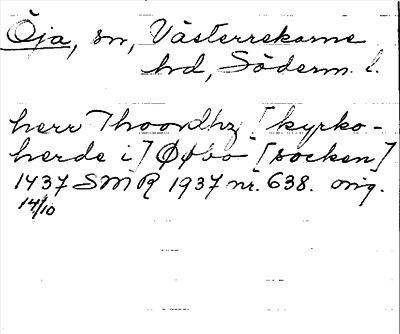 Öja, sn, Västerrekarne
hd, Söderm. l.
herr Thoordhz [kyrko-
herde i] Øøbo [socken]
1437 SMR 1937 nr. 638. orig.
14/10